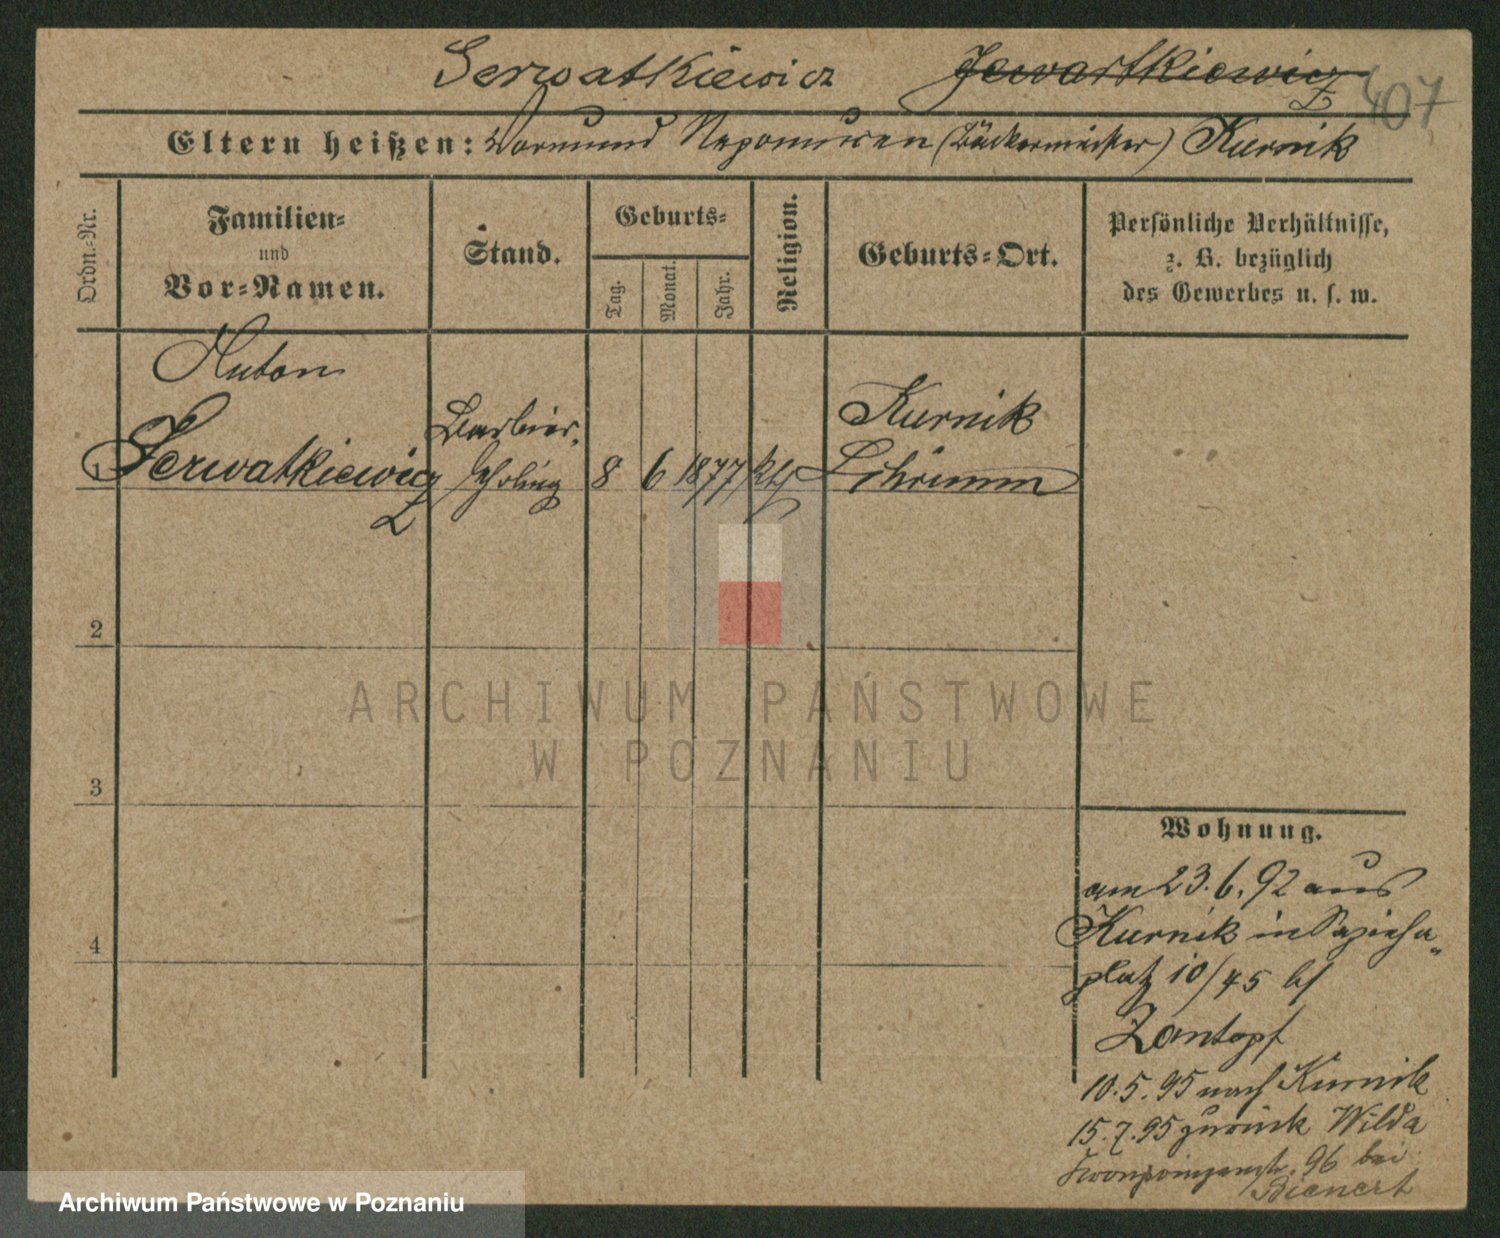 Serwatkiewicz Jewartkiewicz 407
Eltern heißen: Vormund Nepomucen (Bäckermeister) Kurnik
Ordn.-Nr.
Familien-
und
Vor-Namen.
Stand.
Geburts-
Tag.
Monat.
Jahr.
Religion.
Geburts-Ort.
Persönliche Verhältnisse,
z. B. bezüglich
des Gewerbes u. s. w.
Anton
Serwatkiewicz
Barbier,
lehrling
1 8 6 1877 kth
Kurnik
Schrimm
2
3
4
ARCHIWUM PAŃSTWOWE
W POZNANIU
Wohnung.
am 23.6.92 aus
Kurnik in Sapieha-
platz 10/45 bf
Zantopf
10.5.95 nach Kurnik
15.7.95 zurück Wilda
Kronprinzenstr. 96 bei
Bienert
Archiwum Państwowe w Poznaniu